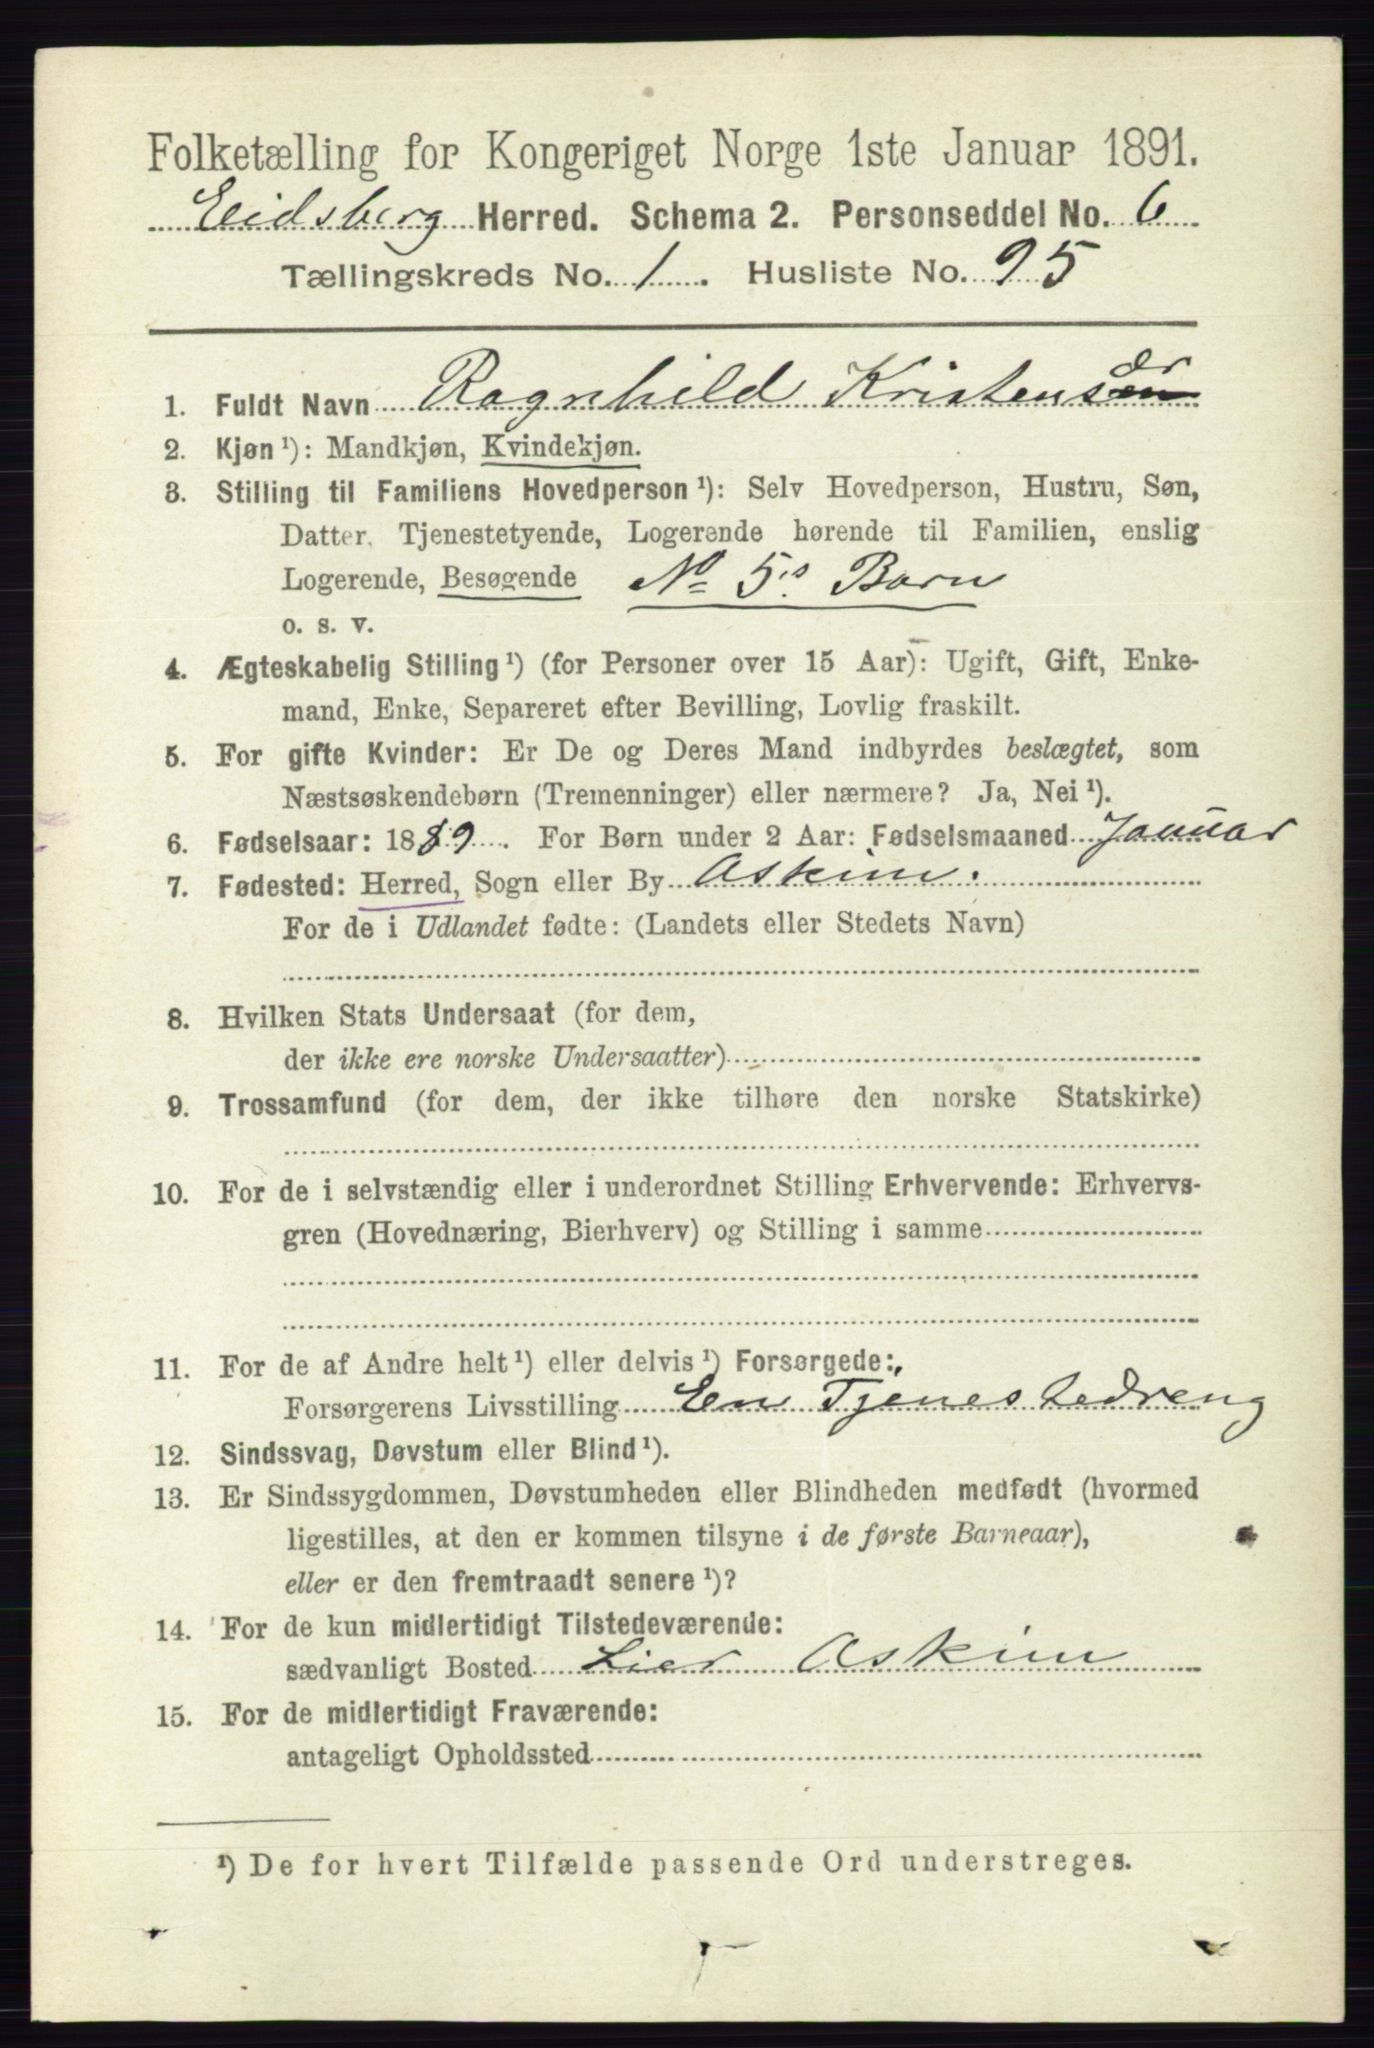 Folketælling for Kongeriget Norge 1ste Januar 1891.
Eidsberg Herred. Schema 2. Personseddel No. 6
Tællingskreds No. 1. Husliste No. 95
1. Fuldt Navn Ragnhild Kristensen dr
2. Kjøn ¹): Mandkjøn, Kvindekjøn.
3. Stilling til Familiens Hovedperson ¹): Selv Hovedperson, Hustru, Søn,
Datter, Tjenestetyende, Logerende hørende til Familien, enslig
Logerende, Besøgende No 5.s Barn
o. s. v.
4. Ægteskabelig Stilling ¹) (for Personer over 15 Aar): Ugift, Gift, Enke-
mand, Enke, Separeret efter Bevilling, Lovlig fraskilt.
5. For gifte Kvinder: Er De og Deres Mand indbyrdes beslægtet, som
Næstsøskendebørn (Tremenninger) eller nærmere? Ja, Nei ¹).
6. Fødselsaar: 1889. For Børn under 2 Aar: Fødselsmaaned Januar
7. Fødested: Herred, Sogn eller By Askim.
For de i Udlandet fødte: (Landets eller Stedets Navn)
8. Hvilken Stats Undersaat (for dem,
der ikke ere norske Undersaatter)
9. Trossamfund (for dem, der ikke tilhøre den norske Statskirke)
10. For de i selvstændig eller i underordnet Stilling Erhvervende: Erhvervs-
gren (Hovednæring, Bierhverv) og Stilling i samme
11. For de af Andre helt ¹) eller delvis ¹) Forsørgede:
Forsørgerens Livsstilling En Tjenestedreng
12. Sindssvag, Døvstum eller Blind ¹).
13. Er Sindssygdommen, Døvstumheden eller Blindheden medfødt (hvormed
ligestilles, at den er kommen tilsyne i de første Barneaar),
eller er den fremtraadt senere ¹)?
14. For de kun midlertidigt Tilstedeværende:
sædvanligt Bosted Lier Askim
15. For de midlertidigt Fraværende:
antageligt Opholdssted
¹) De for hvert Tilfælde passende Ord understreges.